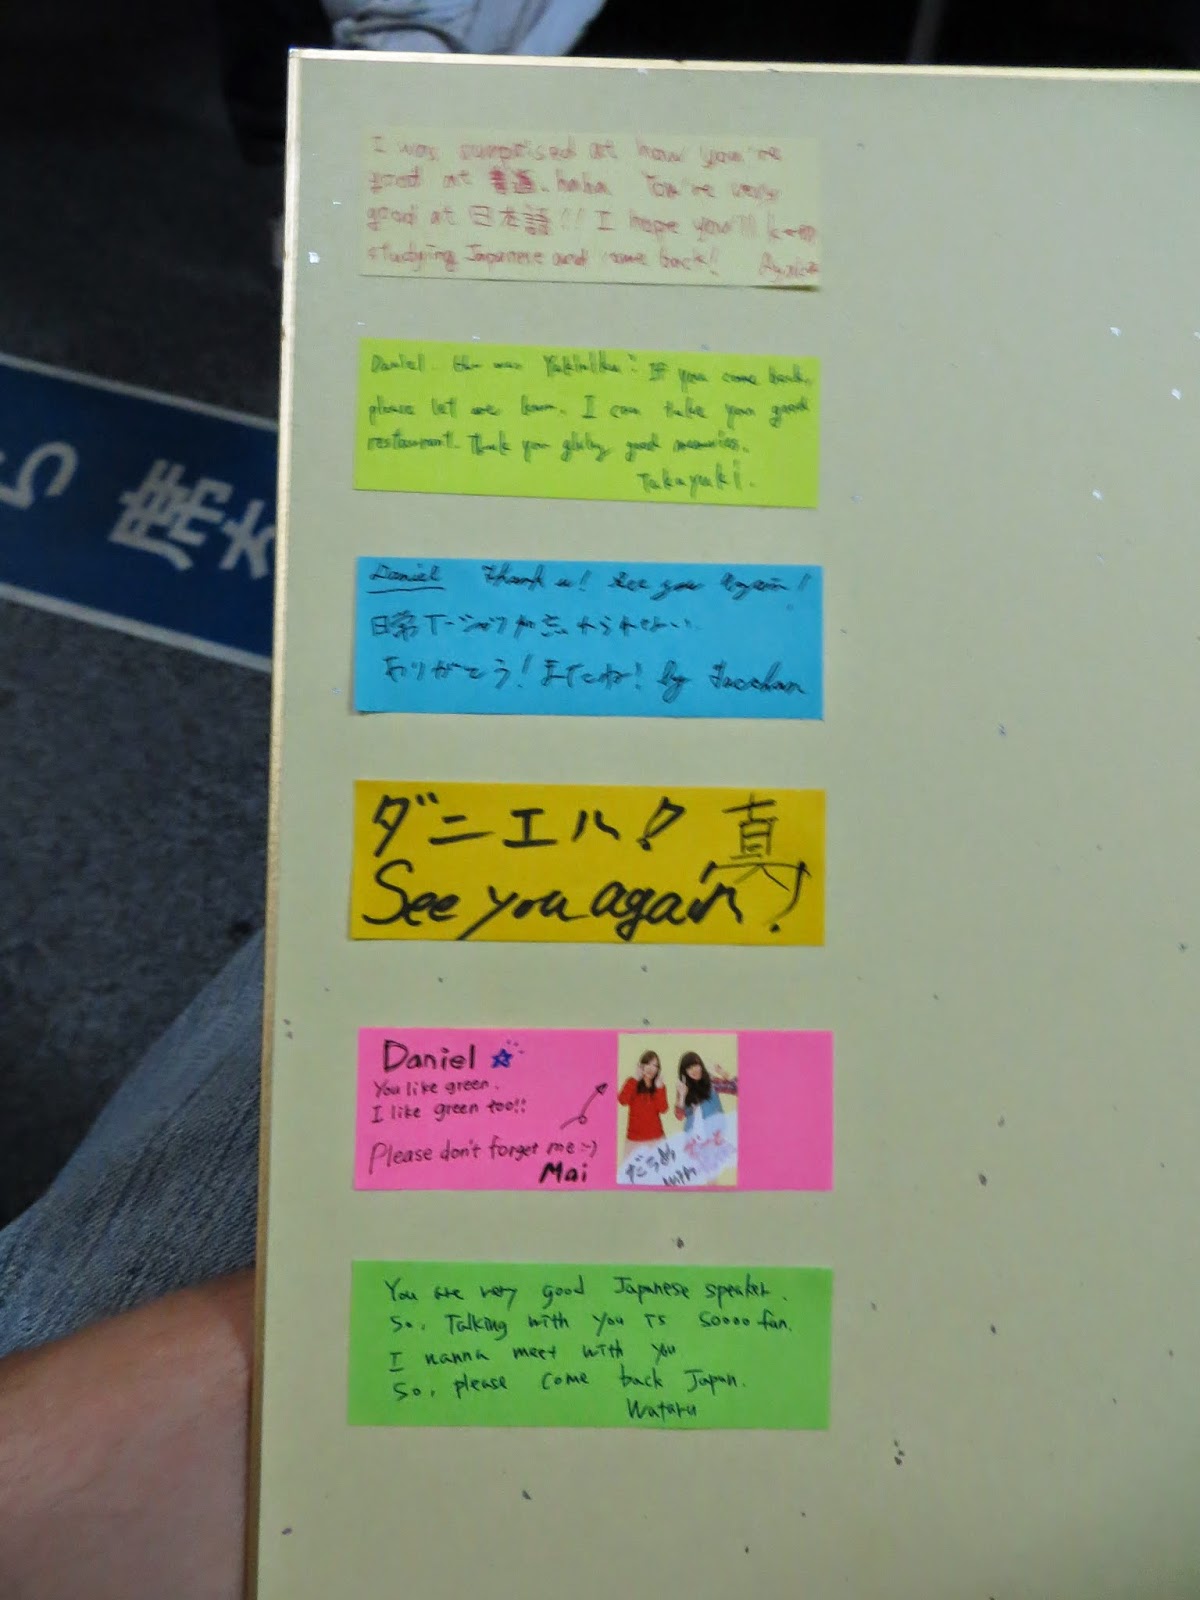 I was surprised at how you're
good at 書道. haha You're very
good at 日本語!! I hope you'll keep
studying Japanese and come back!!
Daniel. How was Yakiniku? If you come back,
please let me know. I can take you good
restaurant. Thank you good memories.
Takayuki.
Daniel Thank u! See you again!
日常Tシャツが忘れられない
ありがとう!またね! by
ダニエル! 真
See you again!
Daniel ☆
You like green.
I like green too!!
Please don't forget me :-)
Mai
You are very good Japanese speaker.
So, Talking with you is soooo fan.
I nanna meet with you
So, please come back Japan.
Wataru
ら 席